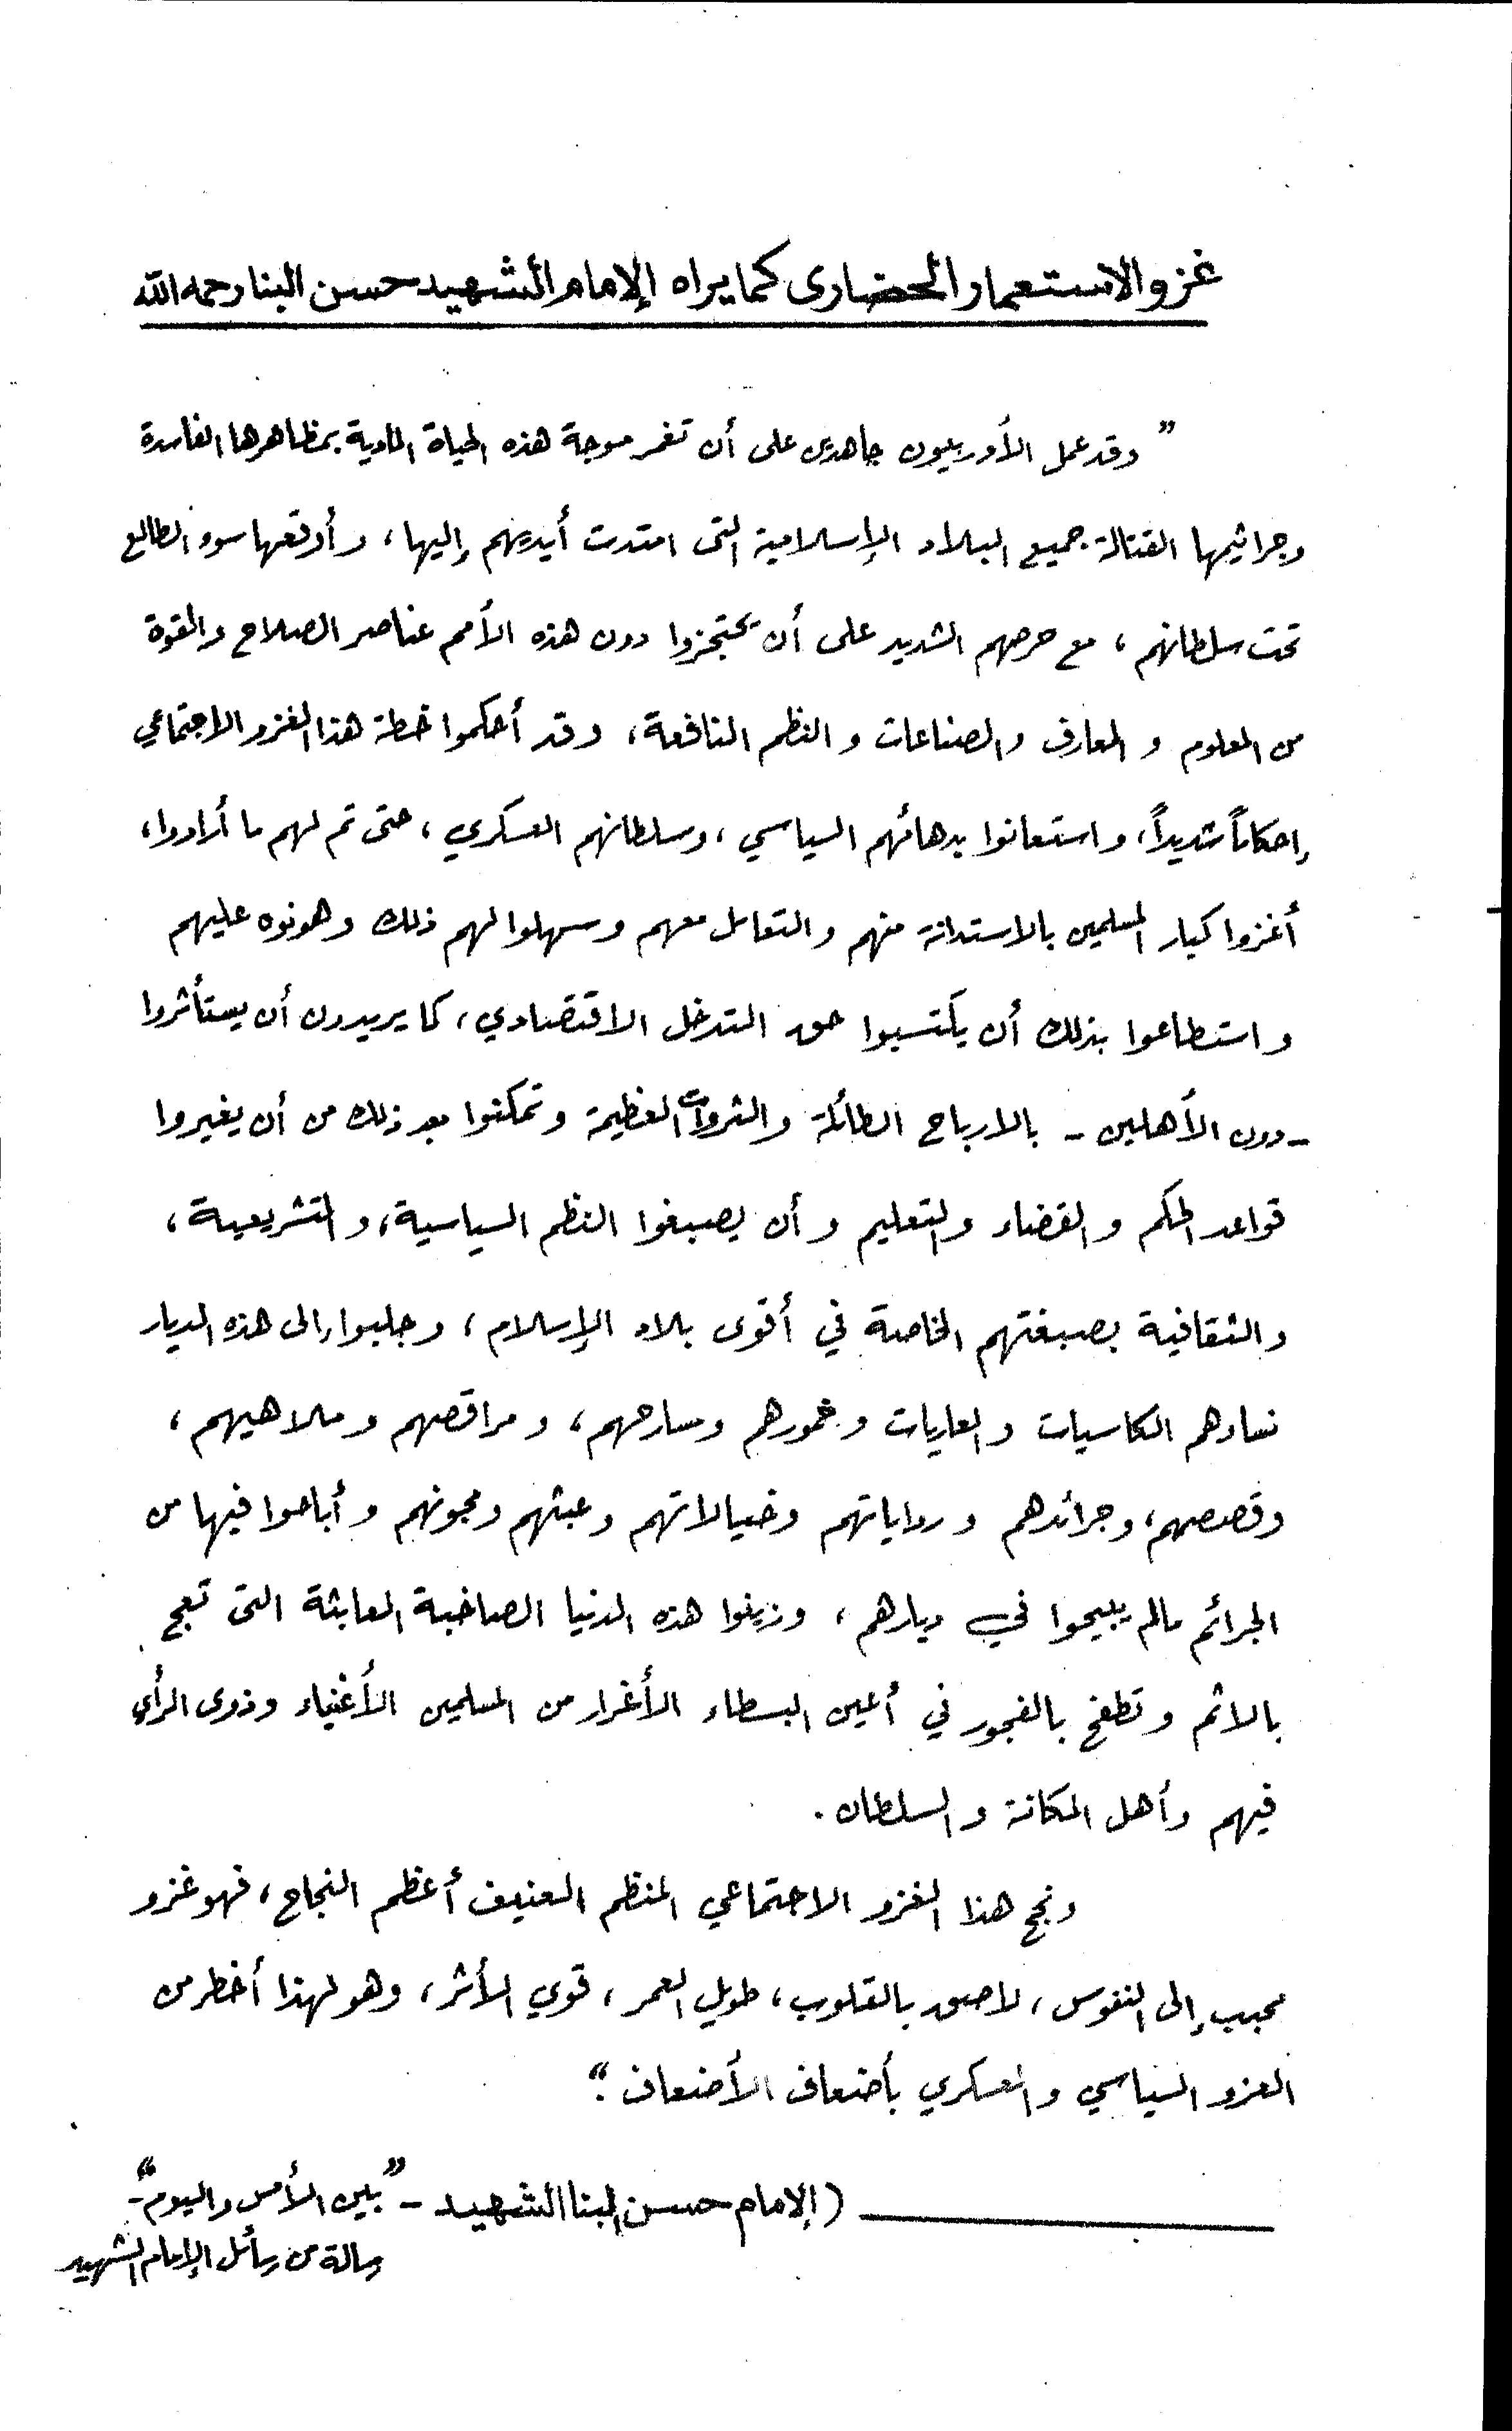 غزو الاستعمار الحضارى كما يراه الإمام الشهيد حسن البنا رحمه الله
” وقد عمل الأوربيون جاهدين على أن تغمر موجة هذه الحياة المادية بمظاهرها الفاسدة
وجراثيمها القتالة جميع البلاد الإسلامية التى امتدت أيديهم إليها، وأوقعها سوء الطالع
تحت سلطانهم، مع حرصهم الشديد على أن يحتجزوا دون هذه الأمم عناصر الصلاح والقوة
من العلوم و المعارف والصناعات و النظم النافعة، وقد أحكموا خطة هذا الغزو الاجتماعي
إحكاماً شديداً، واستعانوا بدهائهم السياسي، وسلطانهم العسكري، حتى تم لهم ما أرادوا،
أغزوا كبار المسلمين بالاستدانة منهم والتعامل معهم وسهلوا لهم ذلك وهونوه عليهم
واستطاعوا بذلك أن يكتسبوا حق التدخل الاقتصادي، كما يريدون أن يستأثروا
- دون الأهلين - بالارباح الطائلة والثروات العظيمة وتمكنوا بعد ذلك من أن يغيروا
قواعد الحكم و القضاء والتعليم وأن يصبغوا النظم السياسية، والتشريعية،
والثقافية بصبغتهم الخاصة في أقوى بلاد الإسلام، وجلبوا إلى هذه الديار
نساءهم الكاسيات والعاريات وخمورهم ومسارحهم، ومراقصهم وملاهيهم،
وقصصهم، وجرائدهم ورواياتهم وخيالاتهم وعبثهم ومجونهم وأباحوا فيها من
الجرائم مالم يبيحوا في ديارهم، وزينوا هذه الدنيا الصاخبة العابثة التى تعج
بالاثم وتطفح بالفجور في أعين البسطاء الأغرار من المسلمين الأغنياء وذوى الرأي
فيهم وأهل المكانة والسلطان.
ونجح هذا الغزو الاجتماعي المنظم العنيف أعظم النجاح، فهو غزو
محبب إلى النفوس، لاصق بالقلوب، طويل العمر، قوي الأثر، وهو لهذا أخطر من
الغزو السياسي والعسكري بأضعاف الأضعاف.“
(الإمام حسن البنا الشهيد - ”بين الأمس واليوم“ -
رسالة من رسائل الإمام الشهيد